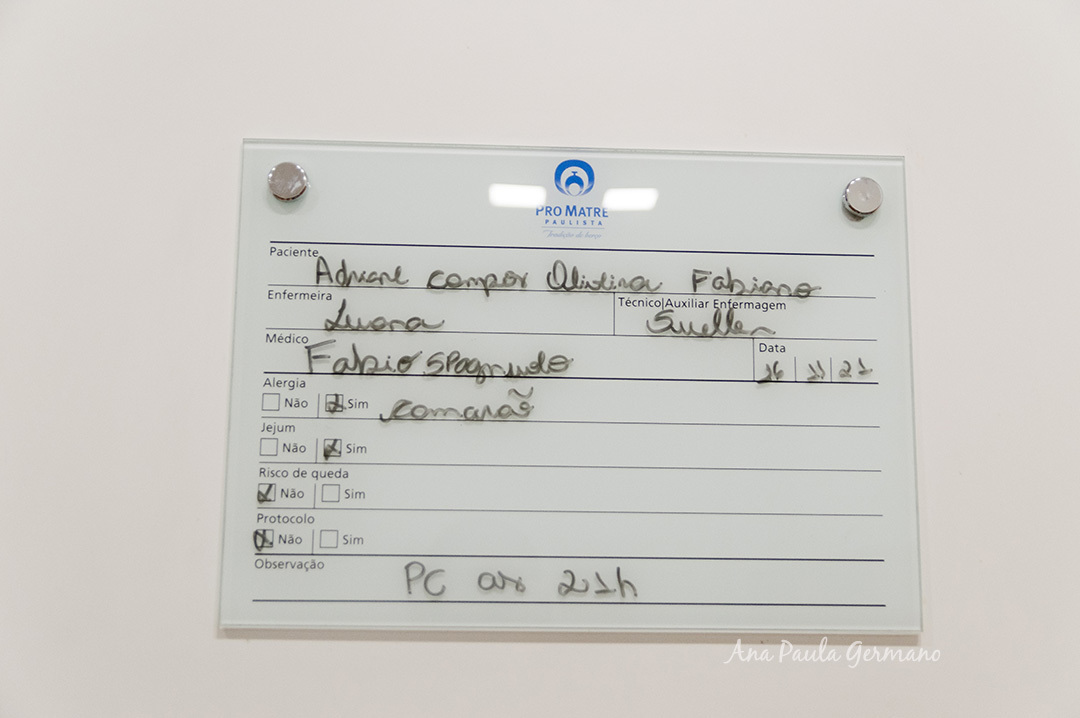 PRO MATRE
PAULISTA
Tradição do berço
Paciente
Adriane Campos Oliveira Fabiano
Enfermeira Técnico|Auxiliar Enfermagem
Luana Suellen
Médico Data
Fabio 26 11 21
Alergia
Não Sim Camarão
Jejum
Não Sim
Risco de queda
Não Sim
Protocolo
Não Sim
Observação
PC as 21h
Ana Paula Germano